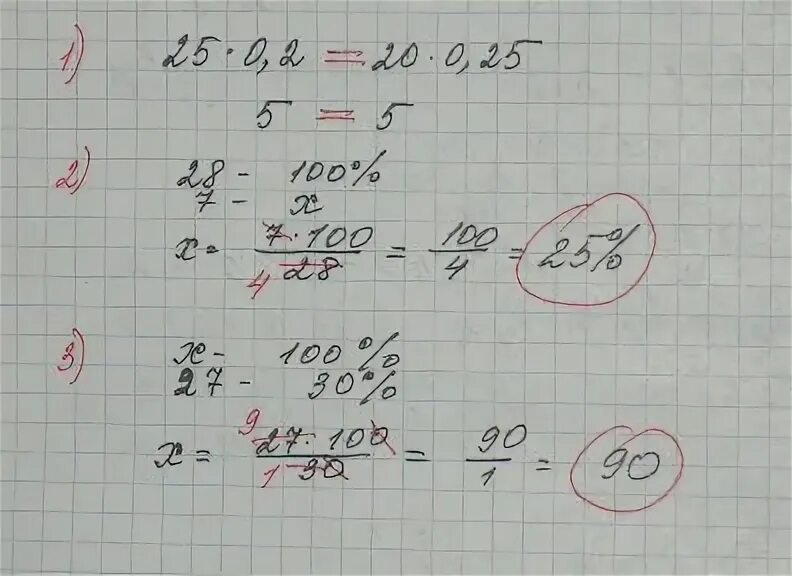 1) 25 · 0,2 = 20 · 0,25
5 = 5
2) 28 - 100%
7 - x
x = 7 · 100 / 4 28 = 100 / 4 = 25%
3) x - 100%
27 - 30%
x = 9 27 · 100 / 1 30 = 90 / 1 = 90